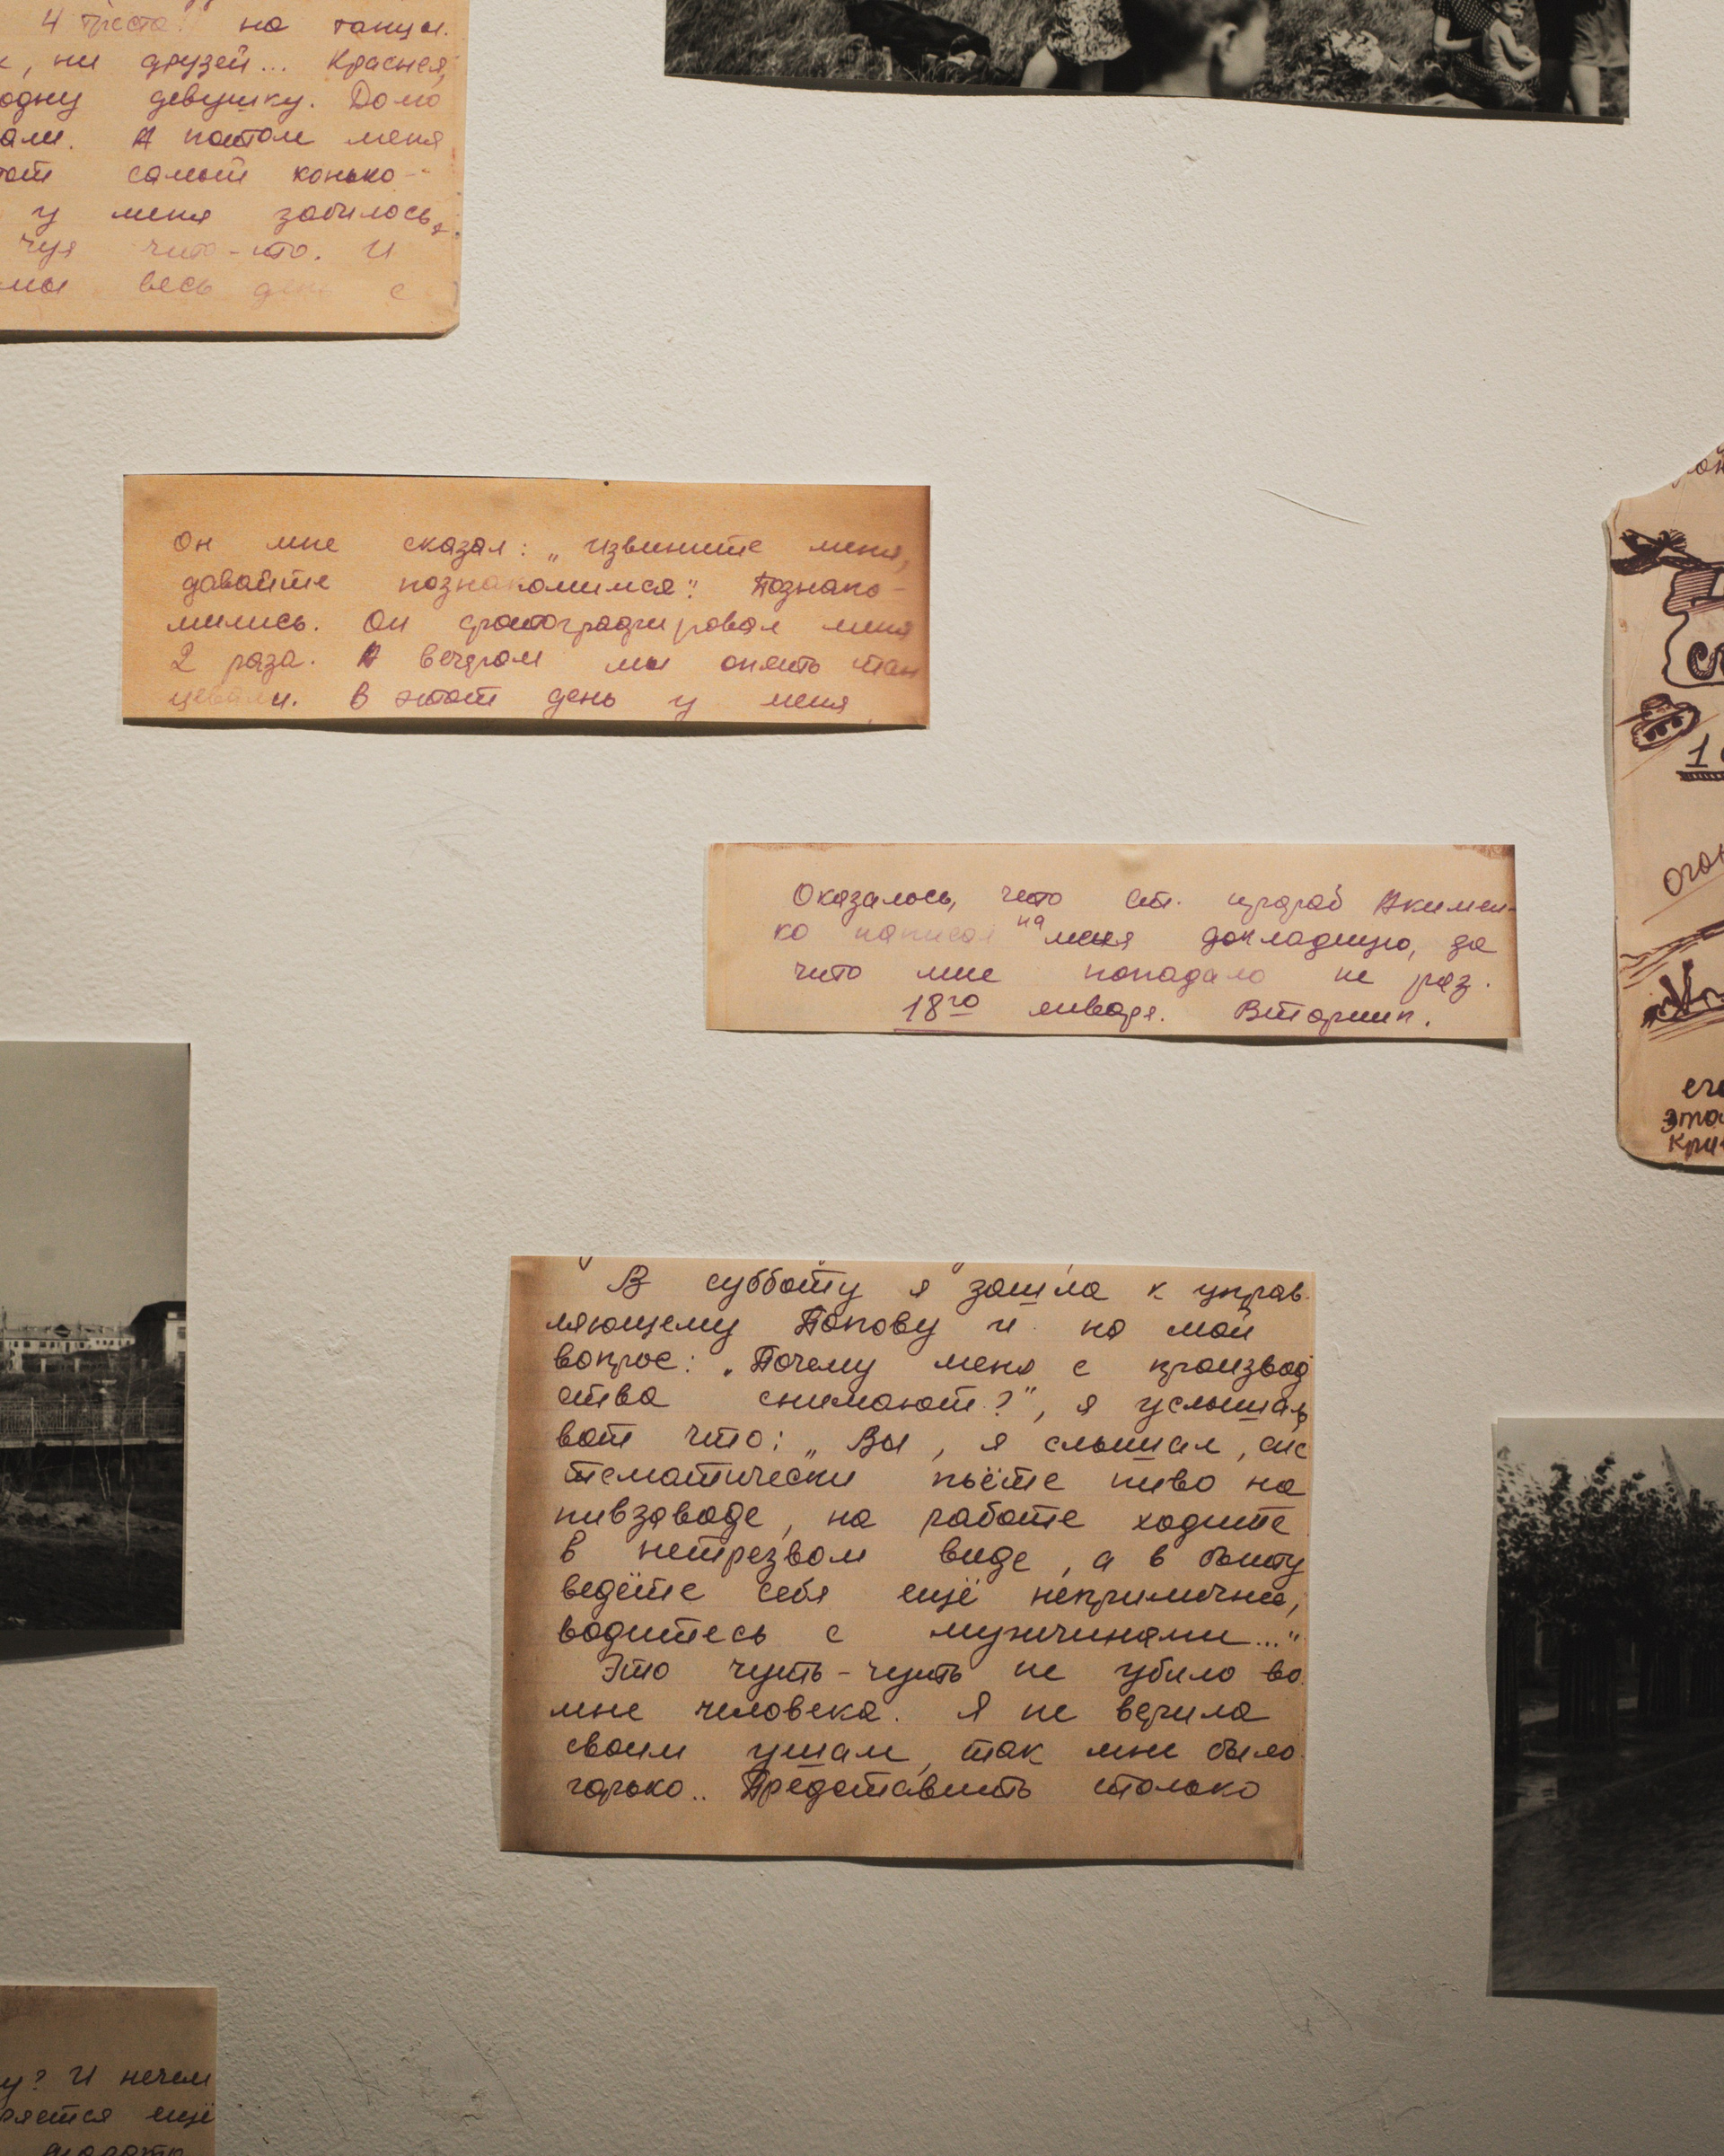 4 треста." на танцы.
, ни друзей... Краснея,
одну девушку. Дома
али. А потом меня
тот самый конько-
у меня забилось,
чуя что-то. И
мы весь день с
Он мне сказал: „извините меня,
давайте познакомимся". Познако-
мились. Он сфотографировал меня
2 раза. А вечером мы опять тан
цевали. В этот день у меня
Оказалось, что ст. прораб Акимен-
ко написал на меня докладную, за
что мне попадало не раз.
18го января. Вторник.
В субботу я зашла к управ-
ляющему Попову и на мой
вопрос: „Почему меня с производ
ства снимают?", я услышал
вот что: „Вы, я слышал, сис
тематически пьёте пиво на
пивзаводе, на работе ходите
в нетрезвом виде, а в быту
ведёте себя ещё неприлично,
водитесь с мужчинами..."
Это чуть-чуть не убило во
мне человека. Я не верила
своим ушам, так мне было
горько.. Представить столько
1
его
это
кри
у? И нечем
ряется ещё